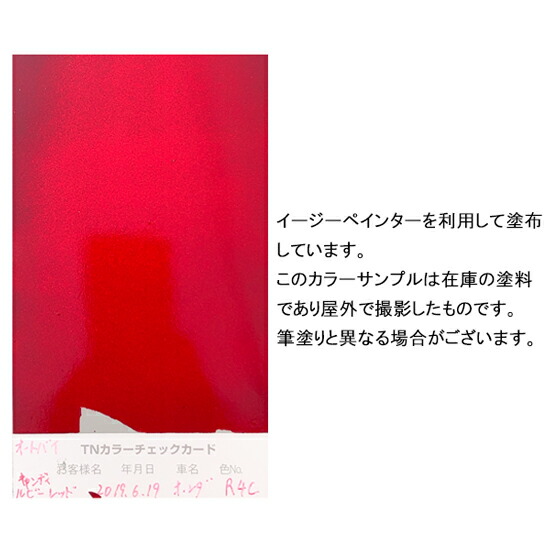 イージーペインターを利用して塗布
しています。
このカラーサンプルは在庫の塗料
であり屋外で撮影したものです。
筆塗りと異なる場合がございます。
オートバイ
TNカラーチェックカード
お客様名 年月日 車名 色No.
キャンディ
ルビーレッド 2019.6.19 ホンダ R4C